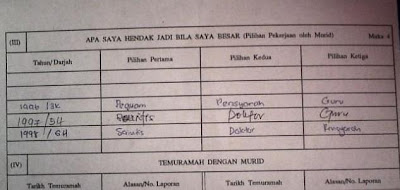 (III) APA SAYA HENDAK JADI BILA SAYA BESAR (Pilihan Pekerjaan oleh Murid) Muka 4
Tahun/Darjah Pilihan Pertama Pilihan Kedua Pilihan Ketiga
1996 /3K Peguam Pensyarah Guru
1997 /5H Doktor Guru
1998 /6H Saintis Doktor Pensyarah
(IV) TEMURAMAH DENGAN MURID
Tarikh Temuramah Alasan/No. Laporan Tarikh Temuramah Alasan/No. Laporan